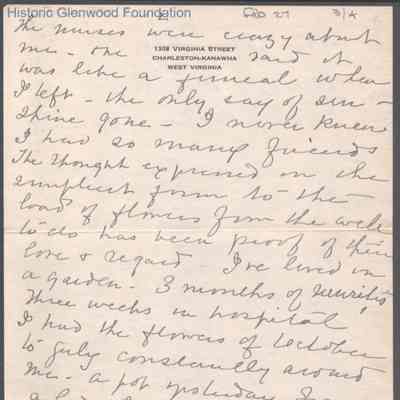 Historic Glenwood Foundation
2
3/4
The nurses were crazy about
1308 VIRGINIA STREET
CHARLESTON-KANAWHA
WEST VIRGINIA
me - one said it
was like a funeral when
I left - the only ray of sun-
shine gone - I never knew
I had so many friends
The thought expressed in the
simplest form to the
load of flowers from the well
to do has been proof of their
love & regard I've lived in
a garden - 3 months of neuritis
Three weeks in hospital
I had the flowers of October
to July constantly around
me - a pot yesterday